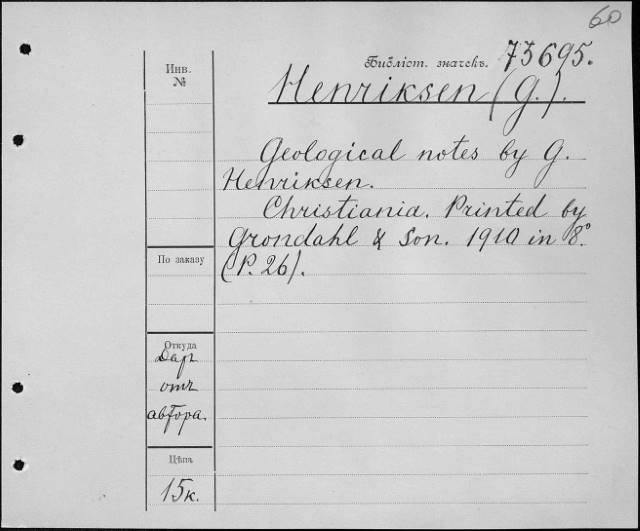 60
Инв.
№
Библіот. значекъ. 73695.
Henriksen (G.).
Geological notes by G.
Henriksen.
Christiania. Printed by
Grondahl & Son. 1910 in 8°
(P. 26).
По заказу
Откуда
Даръ
отъ
автора.
Цѣна
15к.